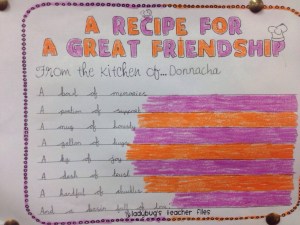 A RECIPE FOR
A GREAT FRIENDSHIP
From the kitchen of... Donnacha
A bowl of memories
A portion of support
A mug of honesty
A gallon of hugs
A of
A dash of trust
A handful of
And a of love
©Ladybug's Teacher Files